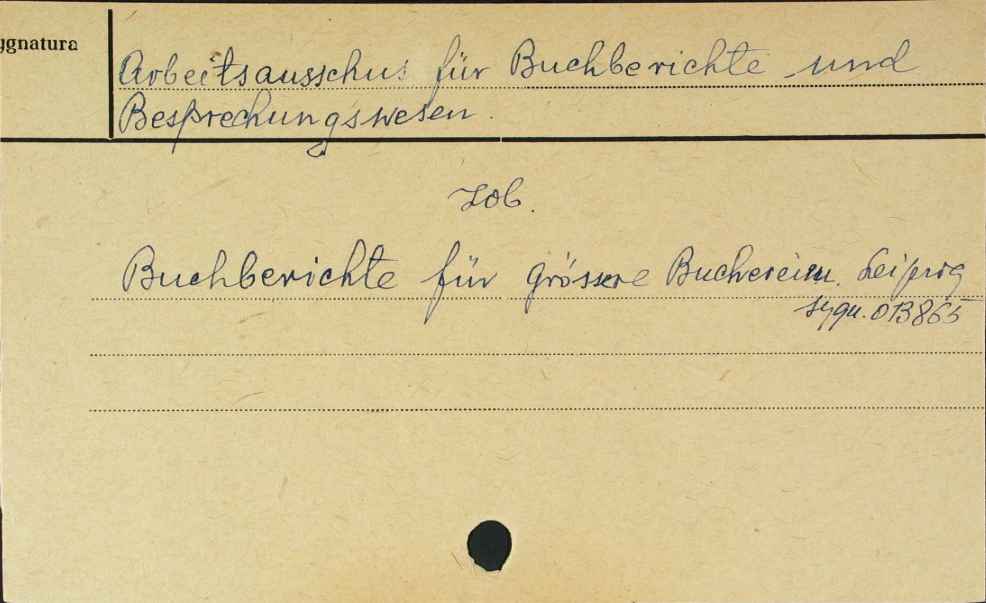 ygnatura
Arbeitsausschus für Buchberichte und
Besprechungswesen.
Zob.
Buchberichte für grössere Buchereien. Leipzig
sygn. 013865